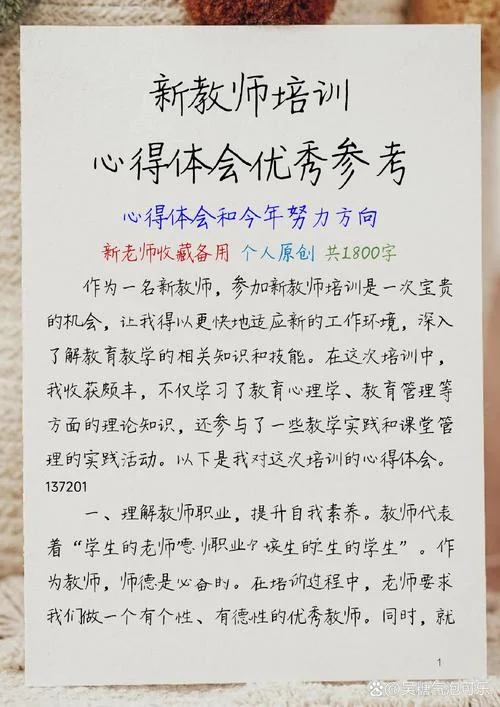 新教师培训
心得体会优秀参考
心得体会和今年努力方向
新老师收藏备用 个人原创 共1800字
作为一名新教师，参加新教师培训是一次宝贵
的机会，让我得以更快地适应新的工作环境，深入
了解教育教学的相关知识和技能。在这次培训中，
我收获颇丰，不仅学习了教育心理学、教育管理等
方面的理论知识，还参与了一些教学实践和课堂管
理的实践活动。以下是我对这次培训的心得体会。
137201
一、理解教师职业，提升自我素养。教师代表
着“学生的老师 职业 生的 生的学生”。作
为教师，师德是必备的。在培训过程中，老师要求
我们做一个有个性、有德性的优秀教师。同时，就
1
吴糖气泡可乐